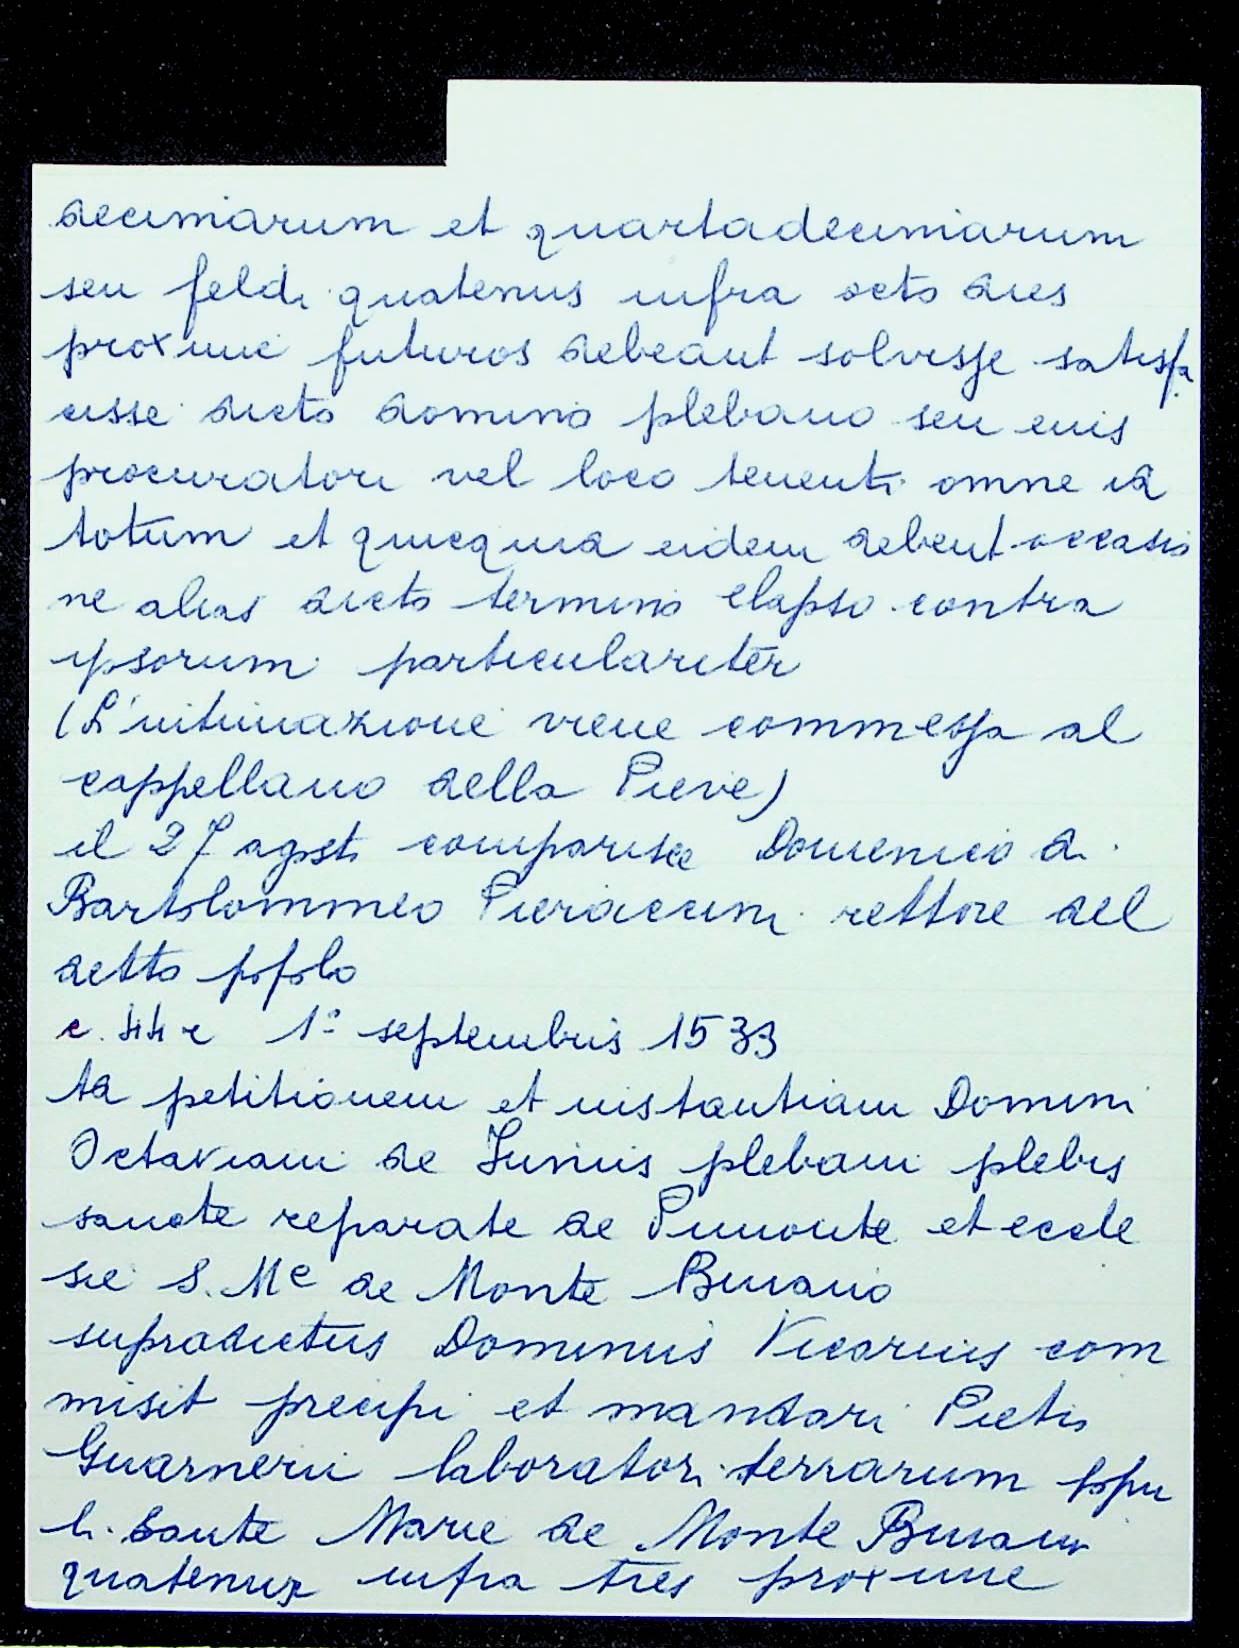 decimarum et quartadecimarum
seu feldi quatenus infra octo dies
proxime futuros debeant solvisse satisfa
cisse dicto domino plebano seu eius
procuratori vel loco tenenti omne id
totum et quicquid eidem debent occasio
ne alias dicto termino elapso contra
ipsorum particulariter
(L'intimazione viene commessa al
cappellano della Pieve)
il 27 agosto comparisce Domenico di
Bartolommeo Pieraccini rettore del
detto popolo
c. 44 r 1º septembris 1533
Ad petitionem et instantiam Domini
Octaviani de Iuniis plebani plebis
sancte reparate de Pimonte et eccle
sie S. Me de Monte Buiano
supradictus Dominus Vicarius com
misit precipi et mandari Pietro
Guarnerii laboratori terrarum popu
li Sante Marie de Monte Buiano
quatenus infra tres proxime